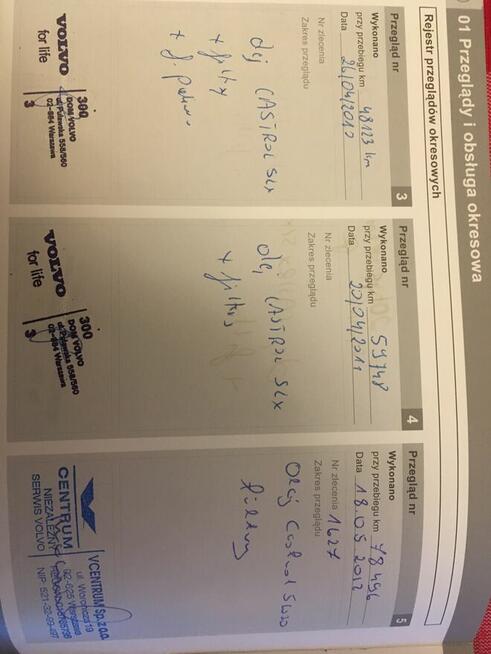 01 Przeglądy i obsługa okresowa
Rejestr przeglądów okresowych
Przegląd nr 3
Wykonano
przy przebiegu km 48123 km
Data 26/04/2010
Nr zlecenia
Zakres przeglądu
olej CASTROL SLX
+ filtry
VOLVO
for life
300
DOM VOLVO
ul. Puławska 558/560
02-884 Warszawa
3
Przegląd nr 4
Wykonano
przy przebiegu km 59748
Data 20/04/2011
Nr zlecenia
Zakres przeglądu
olej CASTROL SLX
+ filtry
VOLVO
for life
300
DOM VOLVO
ul. Puławska 558/560
02-884 Warszawa
3
Przegląd nr 5
Wykonano
przy przebiegu km 78496
Data 18.05.2012
Nr zlecenia 1627
Zakres przeglądu
Olej Castrol 5W30
filtry
VCENTRUM Sp. z o.o.
ul. Woronicza 19
02-625 Warszawa
NIP: 521-32-99-497
CENTRUM
NIEZALEŻNY
SERWIS VOLVO